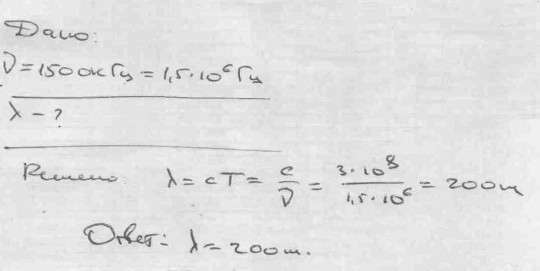 Дано:
ν = 1500 кГц = 1,5·10⁶ Гц
λ - ?
Решение λ = cT = c/ν = 3·10⁸/1,5·10⁶ = 200м
Ответ: λ = 200м.